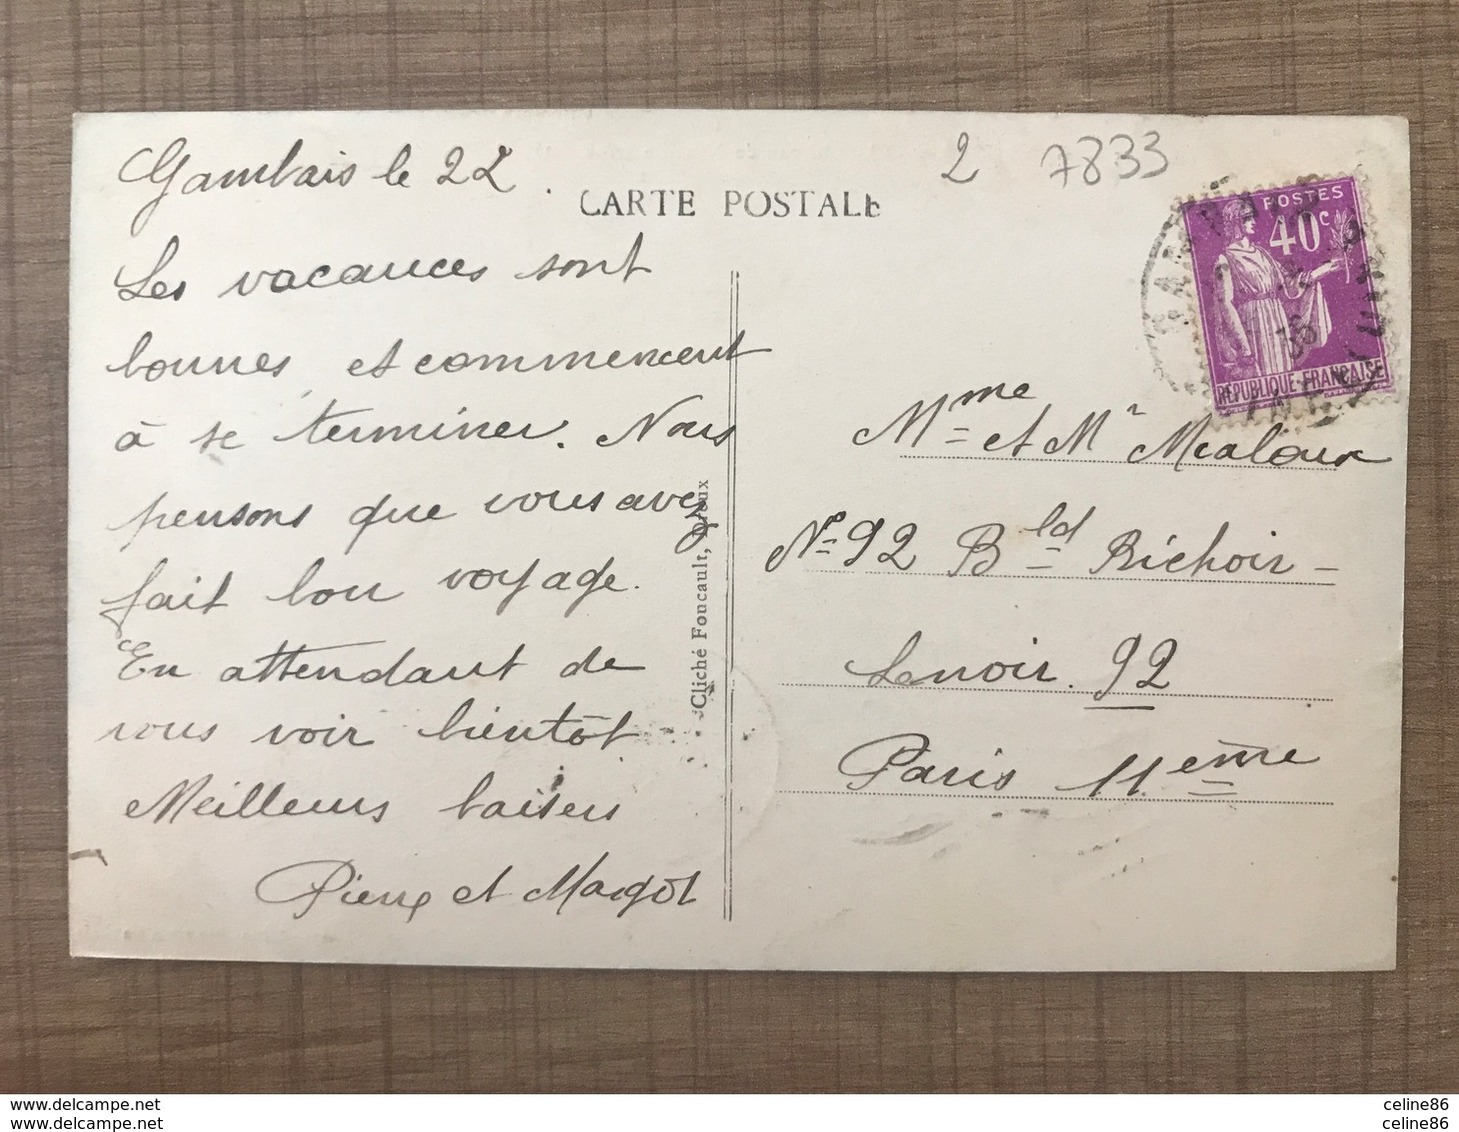 Gambais le 22
CARTE POSTALE
2 7833
Les vacances sont
bonnes et commencent
à se terminer. Nous
pensons que vous avez
fait bon voyage.
En attendant de
vous voir bientôt
Meilleurs baisers
Pierre et Margot
Cliché Foucault, Dreux
POSTES
40c
REPUBLIQUE FRANÇAISE
Mme et Mr
No 92 Bld Richoir-
Lenoir. 92
Paris 11.eme
delcampe.net
celine86
celine86